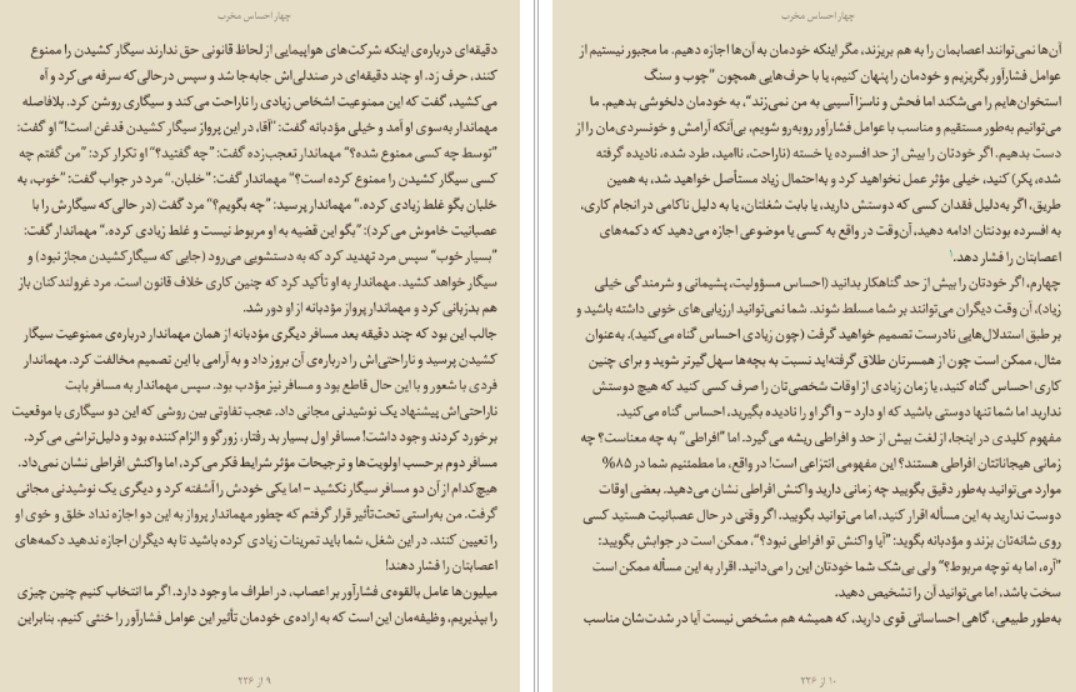 چهار احساس مخرب
دقیقه‌ای درباره‌ی اینکه شرکت‌های هواپیمایی از لحاظ قانونی حق ندارند سیگار کشیدن را ممنوع
کنند، حرف زد. او چند دقیقه‌ای در صندلی‌اش جابه‌جا شد و سپس درحالی‌که سرفه می‌کرد و آه
می‌کشید، گفت که این ممنوعیت اشخاص زیادی را ناراحت می‌کند و سیگاری روشن کرد. بلافاصله
مهماندار به‌سوی او آمد و خیلی مؤدبانه گفت: "آقا، در این پرواز سیگار کشیدن قدغن است!" او گفت:
"توسط چه کسی ممنوع شده؟" مهماندار تعجب‌زده گفت: "چه گفتید؟" او تکرار کرد: "من گفتم چه
کسی سیگار کشیدن را ممنوع کرده است؟" مهماندار گفت: "خلبان." مرد در جواب گفت: "خوب، به
خلبان بگو غلط زیادی کرده." مهماندار پرسید: "چه بگویم؟" مرد گفت (در حالی که سیگارش را با
عصبانیت خاموش می‌کرد): "بگو این قضیه به او مربوط نیست و غلط زیادی کرده." مهماندار گفت:
"بسیار خوب" سپس مرد تهدید کرد که به دستشویی می‌رود (جایی که سیگارکشیدن مجاز نبود) و
سیگار خواهد کشید. مهماندار به او تأکید کرد که چنین کاری خلاف قانون است. مرد غرولندکنان باز
هم بدزبانی کرد و مهماندار پرواز مؤدبانه از او دور شد.
جالب این بود که چند دقیقه بعد مسافر دیگری مؤدبانه از همان مهماندار درباره‌ی ممنوعیت سیگار
کشیدن پرسید و ناراحتی‌اش را درباره‌ی آن بروز داد و به آرامی با این تصمیم مخالفت کرد. مهماندار
فردی با شعور و با این حال قاطع بود و مسافر نیز مؤدب بود. سپس مهماندار به مسافر بابت
ناراحتی‌اش پیشنهاد یک نوشیدنی مجانی داد. عجب تفاوتی بین روشی که این دو سیگاری با موقعیت
برخورد کردند وجود داشت! مسافر اول بسیار بد رفتار، زورگو و الزام‌کننده بود و دلیل‌تراشی می‌کرد.
مسافر دوم برحسب اولویت‌ها و ترجیحات مؤثر شرایط فکر می‌کرد، اما واکنش افراطی نشان نمی‌داد.
هیچ‌کدام از آن دو مسافر سیگار نکشید - اما یکی خودش را آشفته کرد و دیگری یک نوشیدنی مجانی
گرفت. من به‌راستی تحت‌تأثیر قرار گرفتم که چطور مهماندار پرواز به این دو اجازه نداد خلق و خوی او
را تعیین کنند. در این شغل، شما باید تمرینات زیادی کرده باشید تا به دیگران اجازه ندهید دکمه‌های
اعصابتان را فشار دهند!
میلیون‌ها عامل بالقوه‌ی فشارآور بر اعصاب، در اطراف ما وجود دارد. اگر ما انتخاب کنیم چنین چیزی
را بپذیریم، وظیفه‌مان این است که به اراده‌ی خودمان تأثیر این عوامل فشارآور را خنثی کنیم. بنابراین
۹ از ۲۲۶
چهار احساس مخرب
آن‌ها نمی‌توانند اعصابمان را به هم بریزند، مگر اینکه خودمان به آن‌ها اجازه دهیم. ما مجبور نیستیم از
عوامل فشارآور بگریزیم و خودمان را پنهان کنیم، یا با حرف‌هایی همچون "چوب و سنگ
استخوان‌هایم را می‌شکند اما فحش و ناسزا آسیبی به من نمی‌زند"، به خودمان دلخوشی بدهیم. ما
می‌توانیم به‌طور مستقیم و مناسب با عوامل فشارآور روبه‌رو شویم، بی‌آنکه آرامش و خونسردی‌مان را از
دست بدهیم. اگر خودتان را بیش از حد افسرده یا خسته (ناراحت، ناامید، طرد شده، نادیده گرفته
شده، پکر) کنید، خیلی مؤثر عمل نخواهید کرد و به‌احتمال زیاد مستأصل خواهید شد، به همین
طریق، اگر به‌دلیل فقدان کسی که دوستش دارید، یا بابت شغلتان، یا به دلیل ناکامی در انجام کاری،
به افسرده بودنتان ادامه دهید، آن‌وقت در واقع به کسی یا موضوعی اجازه می‌دهید که دکمه‌های
اعصابتان را فشار دهد.۱
چهارم، اگر خودتان را بیش از حد گناهکار بدانید (احساس مسؤولیت، پشیمانی و شرمندگی خیلی
زیاد)، آن وقت دیگران می‌توانند بر شما مسلط شوند. شما نمی‌توانید ارزیابی‌های خوبی داشته باشید و
بر طبق استدلال‌هایی نادرست تصمیم خواهید گرفت (چون زیادی احساس گناه می‌کنید). به‌عنوان
مثال، ممکن است چون از همسرتان طلاق گرفته‌اید نسبت به بچه‌ها سهل‌گیرتر شوید و برای چنین
کاری احساس گناه کنید، یا زمان زیادی از اوقات شخصی‌تان را صرف کسی کنید که هیچ دوستش
ندارید اما شما تنها دوستی باشید که او دارد - و اگر او را نادیده بگیرید، احساس گناه می‌کنید.
مفهوم کلیدی در اینجا، از لغت بیش از حد و افراطی ریشه می‌گیرد. اما "افراطی" به چه معناست؟ چه
زمانی هیجاناتتان افراطی هستند؟ این مفهومی انتزاعی است! در واقع، ما مطمئنیم شما در ۸۵%
موارد می‌توانید به‌طور دقیق بگویید چه زمانی دارید واکنش افراطی نشان می‌دهید. بعضی اوقات
دوست ندارید به این مسأله اقرار کنید، اما می‌توانید بگویید. اگر وقتی در حال عصبانیت هستید کسی
روی شانه‌تان بزند و مؤدبانه بگوید: "آیا واکنش تو افراطی نبود؟"، ممکن است در جوابش بگویید:
"آره، اما به تو چه مربوط؟" ولی بی‌شک شما خودتان این را می‌دانید. اقرار به این مسأله ممکن است
سخت باشد، اما می‌توانید آن را تشخیص دهید.
به‌طور طبیعی، گاهی احساساتی قوی دارید، که همیشه هم مشخص نیست آیا در شدت‌شان مناسب
۱۰ از ۲۲۶